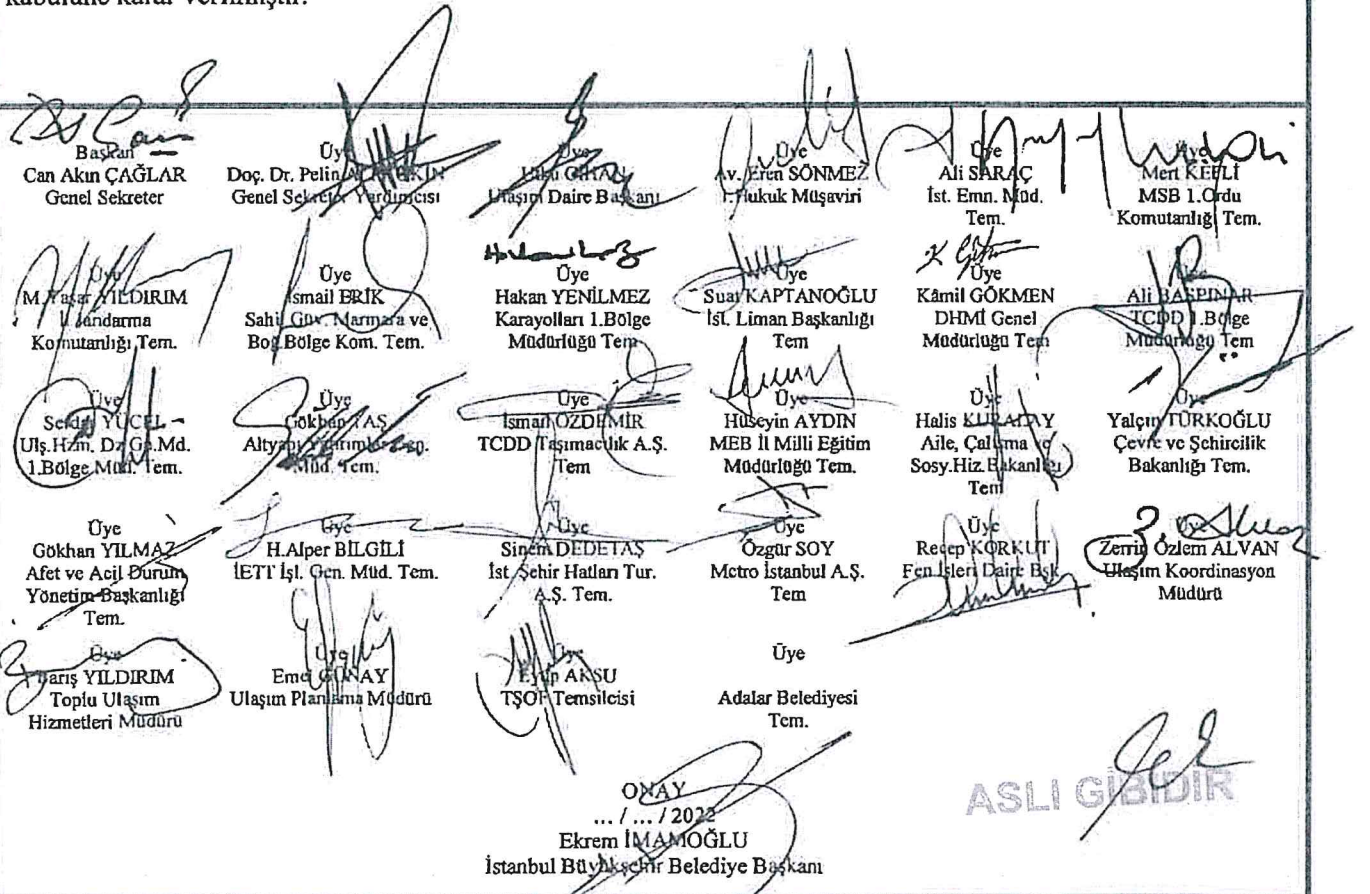 kabulüne karar verilmiştir.
Başkan
Can Akın ÇAĞLAR
Genel Sekreter
Üye
Doç. Dr. Pelin
Genel Sekreter Yardımcısı
Üye
Ulaşım Daire Başkanı
Üye
Av. Eren SÖNMEZ
1.Hukuk Müşaviri
Üye
Ali SARAÇ
İst. Emn. Müd.
Tem.
Üye
Mert KEFLİ
MSB 1.Ordu
Komutanlığı Tem.
Üye
M.Yaşar YILDIRIM
İl Jandarma
Komutanlığı Tem.
Üye
İsmail ERİK
Sahil Güv. Marmara ve
Boğ.Bölge Kom. Tem.
Üye
Hakan YENİLMEZ
Karayolları 1.Bölge
Müdürlüğü Tem
Üye
Suat KAPTANOĞLU
İst. Liman Başkanlığı
Tem
Üye
Kâmil GÖKMEN
DHMİ Genel
Müdürlüğü Tem
Ali BAŞPINAR
TCDD 1.Bölge
Müdürlüğü Tem
Üye
Serdar YÜCEL
Ulş.Hzm. Dz Gn.Md.
1.Bölge Müd. Tem.
Üye
Gökhan TAŞ
Müd. Tem.
Üye
İsmail ÖZDEMİR
TCDD Taşımacılık A.Ş.
Tem
Üye
Hüseyin AYDIN
MEB İl Milli Eğitim
Müdürlüğü Tem.
Üye
Halis
Aile, Çalışma ve
Sosy.Hiz.Bakanlığı
Tem
Üye
Yalçın TÜRKOĞLU
Çevre ve Şehircilik
Bakanlığı Tem.
Üye
Gökhan YILMAZ
Afet ve Acil Durum
Yönetim Başkanlığı
Tem.
Üye
H.Alper BİLGİLİ
İETT İşl. Gen. Müd. Tem.
Üye
Sinem DEDETAŞ
İst. Şehir Hatları Tur.
A.Ş. Tem.
Üye
Özgür SOY
Metro İstanbul A.Ş.
Tem
Üye
Recep KORKUT
Fen İşleri Daire Bşk
Üye
Zerrin Özlem ALVAN
Ulaşım Koordinasyon
Müdürü
Üye
Barış YILDIRIM
Toplu Ulaşım
Hizmetleri Müdürü
Üye
Emel GÜNAY
Ulaşım Planlama Müdürü
Üye
Eyüp AKSU
TŞOF Temsilcisi
Üye
Adalar Belediyesi
Tem.
ONAY
... / ... / 2022
Ekrem İMAMOĞLU
İstanbul Büyükşehir Belediye Başkanı
ASLI GİBİDİR